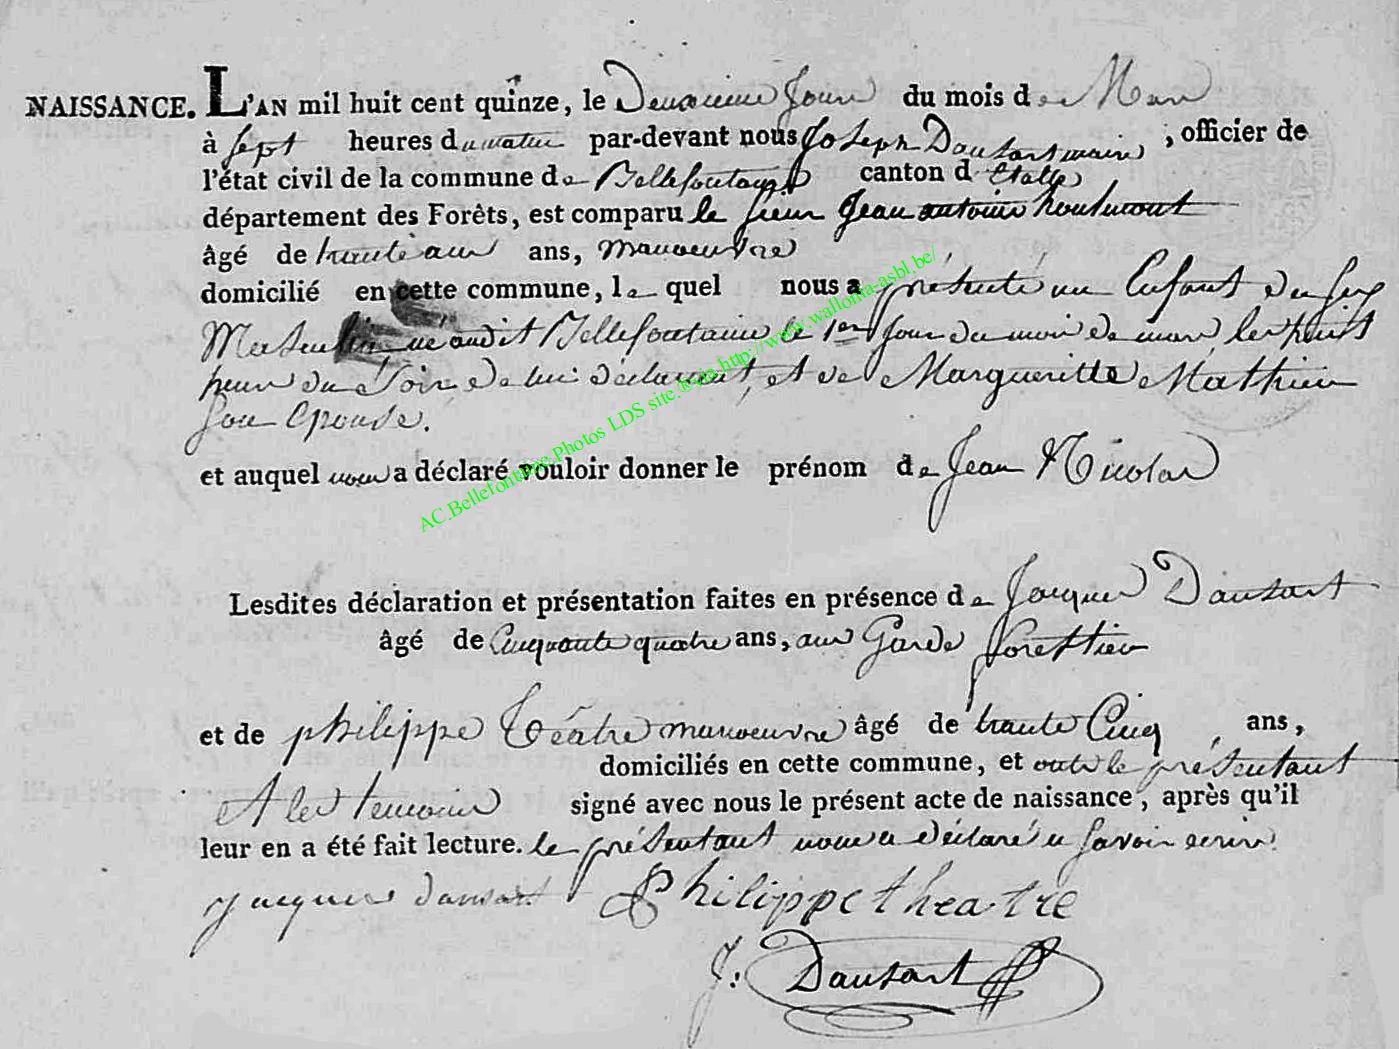 NAISSANCE. L'AN mil huit cent quinze, le Deuxieme Jour du mois de Mars
à sept heures du matin par-devant nous Joseph Dausart maire, officier de
l'état civil de la commune de Bellefontaine canton d'Etalle
département des Forêts, est comparu le sieur Jean antoine houlmont
âgé de trente ans, manoeuvre
domicilié en cette commune, le quel nous a présenté un Enfant du sexe
Masculin, né audit Bellefontaine le 1er Jour du mois de mars, les huit
heures du Soir de lui déclarant, et de Margueritte Mathieu
son Epouse.
et auquel nous a déclaré vouloir donner le prénom de Jean Nicolas
Lesdites déclaration et présentation faites en présence de Jacques Dausart
âgé de Cinquante quatre ans, Garde forettier
et de philippe Téatre manoeuvre âgé de trante Cinq, ans,
domiciliés en cette commune, et le présentant
Et les temoins signé avec nous le présent acte de naissance, après qu'il
leur en a été fait lecture. le présentant nous a déclaré savoir
Jacques dausart Philippe theatre
J. Dausart
AC.Bellefontaine.Photos LDS site. via http://www.wallonia-asbl.be/